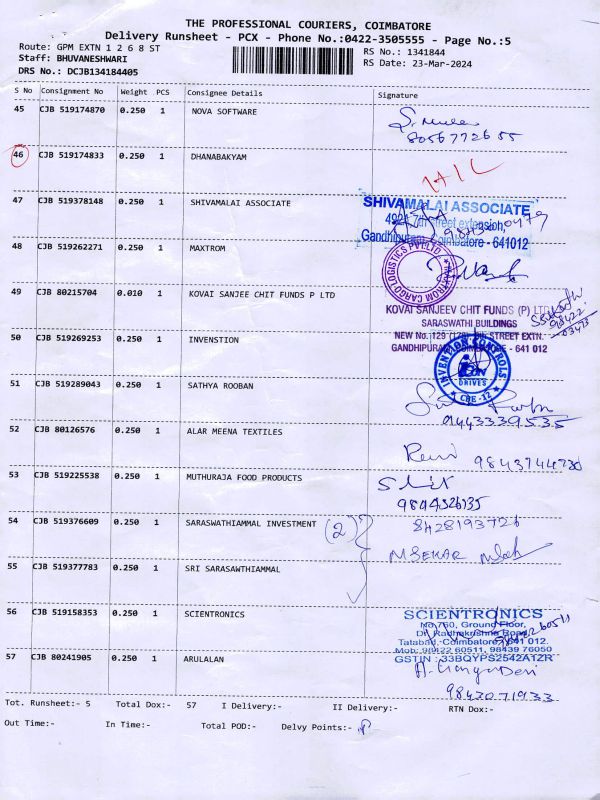 THE PROFESSIONAL COURIERS, COIMBATORE
Delivery Runsheet - PCX - Phone No.:0422-3505555 - Page No.:5
Route: GPM EXTN 1 2 6 8 ST
RS No.: 1341844
Staff: BHUVANESHWARI
RS Date: 23-Mar-2024
DRS No.: DCJB134184405
S No Consignment No Weight PCS Consignee Details Signature
45 CJB 519174870 0.250 1 NOVA SOFTWARE
8056772655
46 CJB 519174833 0.250 1 DHANABAKYAM
47 CJB 519378148 0.250 1 SHIVAMALAI ASSOCIATE
SHIVAMALAI ASSOCIATE
492, 7th Street extension,
Gandhipuram, Coimbatore - 641012
48 CJB 519262271 0.250 1 MAXTROM
MAXTROM CARGO LOGISTICS PVT LTD
49 CJB 80215704 0.010 1 KOVAI SANJEE CHIT FUNDS P LTD
KOVAI SANJEEV CHIT FUNDS (P) LTD
SARASWATHI BUILDINGS
NEW No. 129 STREET EXTN.
GANDHIPURAM, COIMBATORE - 641 012
50 CJB 519269253 0.250 1 INVENSTION
INVENTION CONTROLS
DRIVES
CBE -12
51 CJB 519289043 0.250 1 SATHYA ROOBAN
9443339535
52 CJB 80126576 0.250 1 ALAR MEENA TEXTILES
9843744730
53 CJB 519225538 0.250 1 MUTHURAJA FOOD PRODUCTS
54 CJB 519376609 0.250 1 SARASWATHIAMMAL INVESTMENT (2) 8428193726
M SEKAR
55 CJB 519377783 0.250 1 SRI SARASAWTHIAMMAL
56 CJB 519158353 0.250 1 SCIENTRONICS
SCIENTRONICS
No.760, Ground Floor,
Dr. Radhakrishna Road,
Tatabad, Coimbatore - 641 012.
Mob: 98422 60511, 98439 76050
GSTIN : 33BQYPS2542A1ZR
57 CJB 80241905 0.250 1 ARULALAN
9843071933
Tot. Runsheet:- 5 Total Dox:- 57 I Delivery:- II Delivery:- RTN Dox:-
Out Time:- In Time:- Total POD:- Delvy Points:-